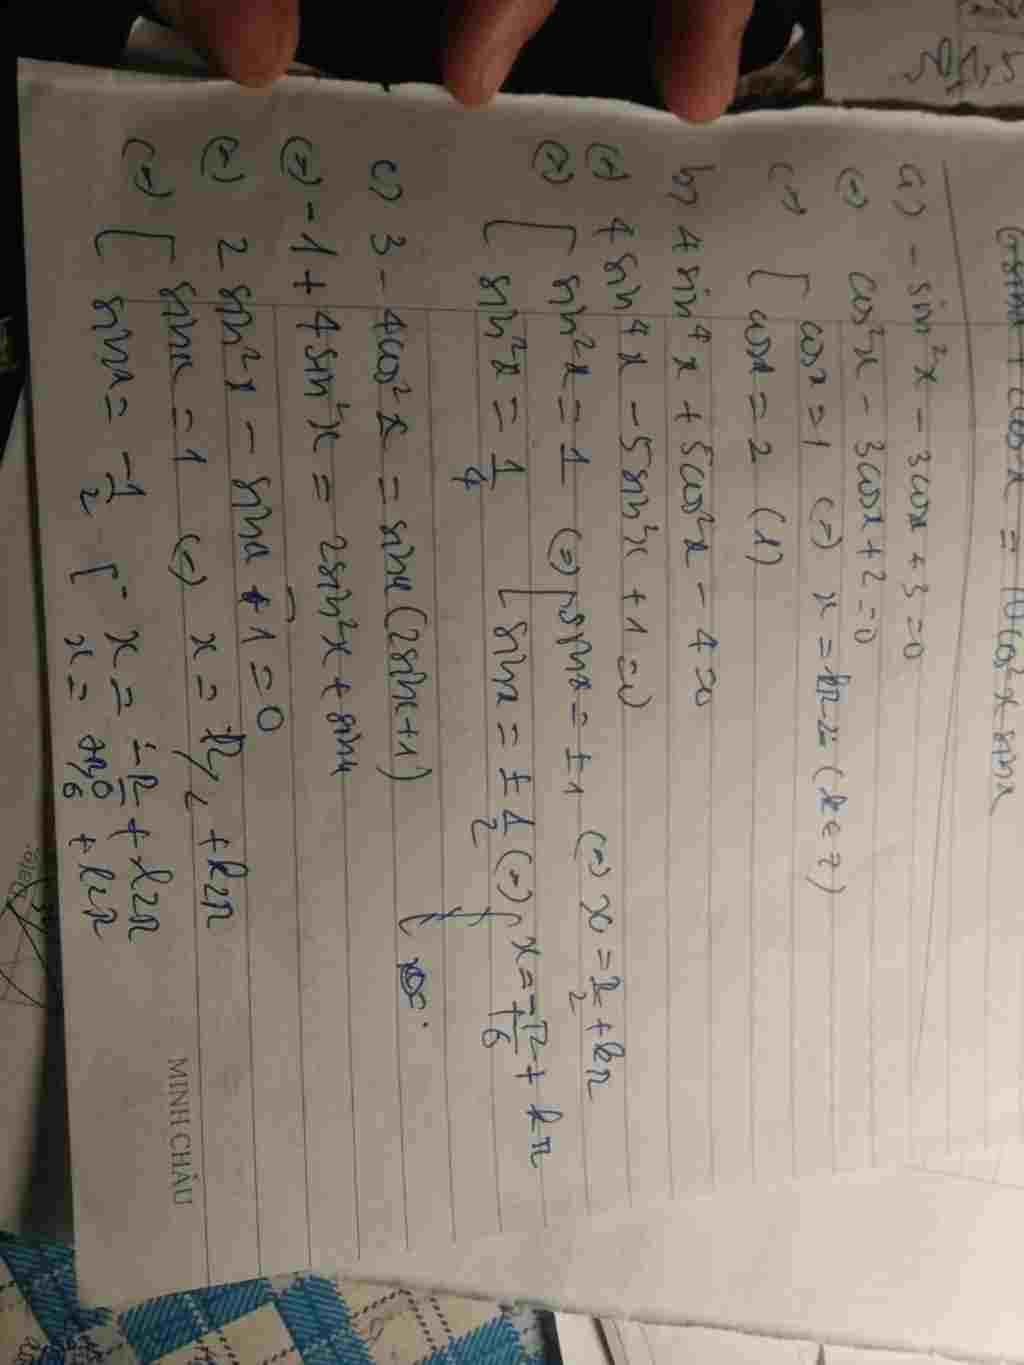 6sinx + 2cos³x = 10cos²x sinx
a) - sin²x - 3cosx + 3 = 0
(=) cos²x - 3cosx + 2 = 0
(=) [ cosx = 1 (=) x = k2π (k ∈ Z)
cosx = 2 (1)
b) 4sin⁴x + 5cos²x - 4 = 0
(=) 4sin⁴x - 5sin²x + 1 = 0
(=) [ sin²x = 1 (=) [ sinx = ±1 (=) x = π/2 + kπ
sin²x = 1/4 [ sinx = ± 1/2 (=) { x = ± π/6 + kπ
c) 3 - 4cos²x = sinx(2sinx+1)
(=) -1 + 4sin²x = 2sin²x + sinx
(=) 2sin²x - sinx - 1 = 0
(=) [ sinx = 1 (=) x = π/2 + k2π
sinx = -1/2 [ x = -π/6 + k2π
x = 7π/6 + k2π
Date:
MINH CHÂU